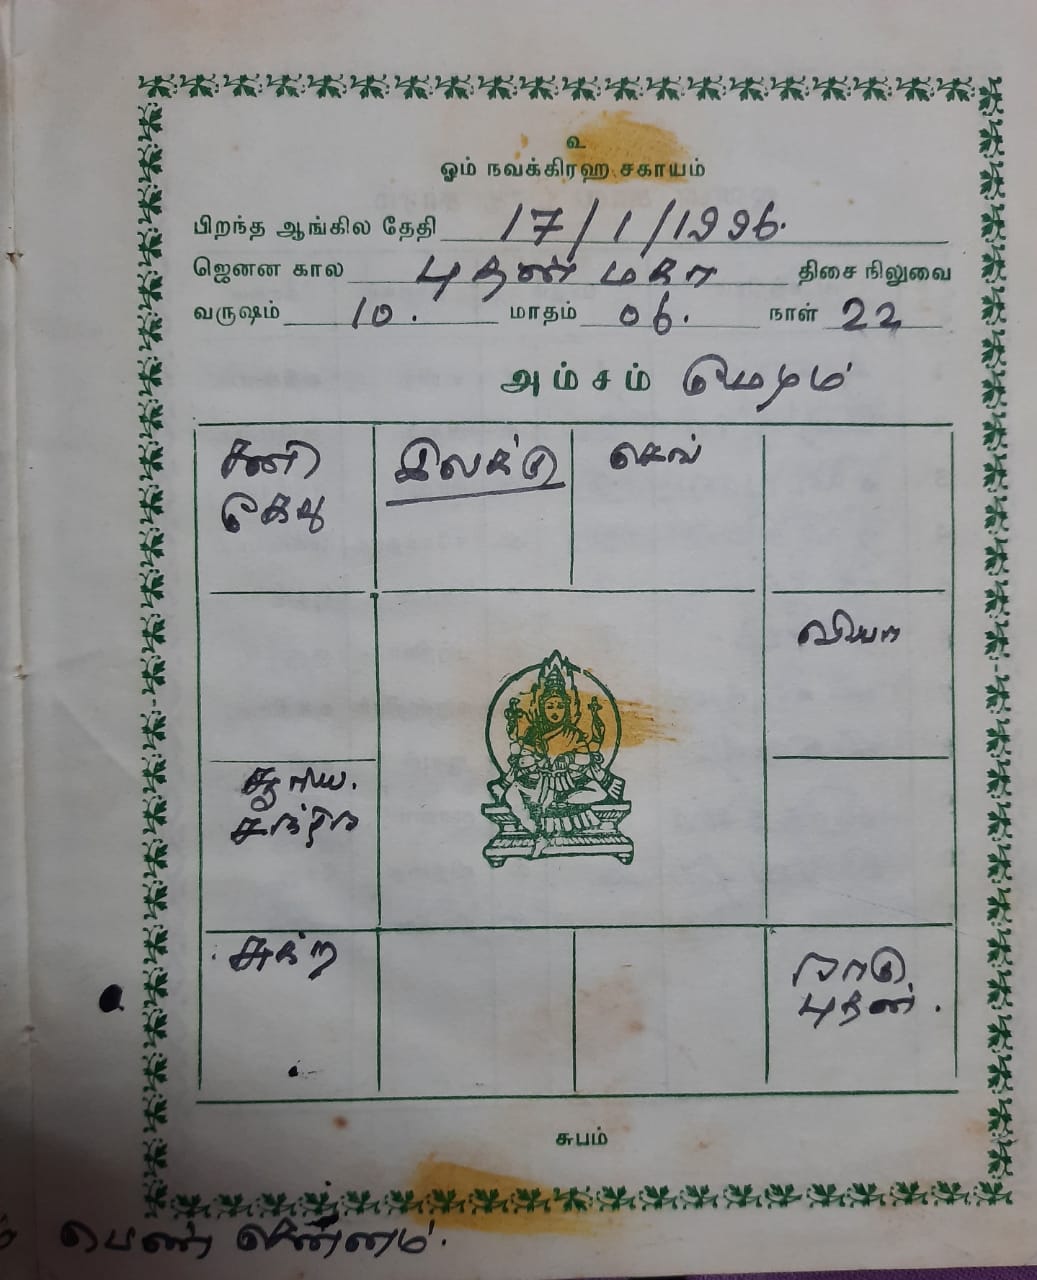 உ
ஓம் நவக்கிரஹ சகாயம்
பிறந்த ஆங்கில தேதி 17/1/1996.
ஜெனன கால புதன் மகா திசை நிலுவை
வருஷம் 10. மாதம் 06. நாள் 22
அம்சம் மேஷம்
சனி
கேது
இலக்கு
செவ்
வியா
சூரிய.
சந்திர
சுக்ர
ராகு
புதன்.
சுபம்
பெண் சென்னம்.